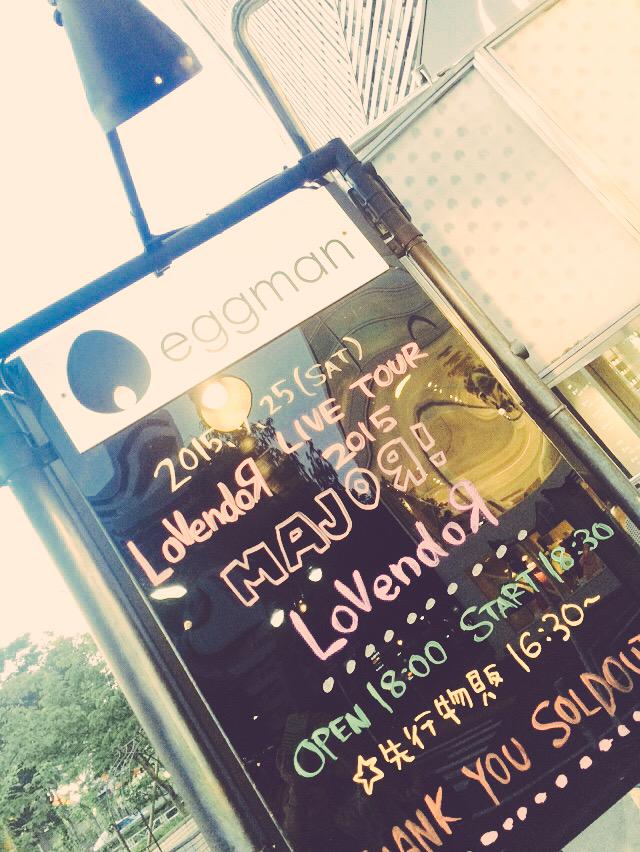 eggman
2015.7.25(SAT)
LoVendoЯ LIVE TOUR
2015
MAJOЯ!
LoVendoЯ
OPEN 18:00 START 18:30
☆先行物販 16:30~
THANK YOU SOLDOUT